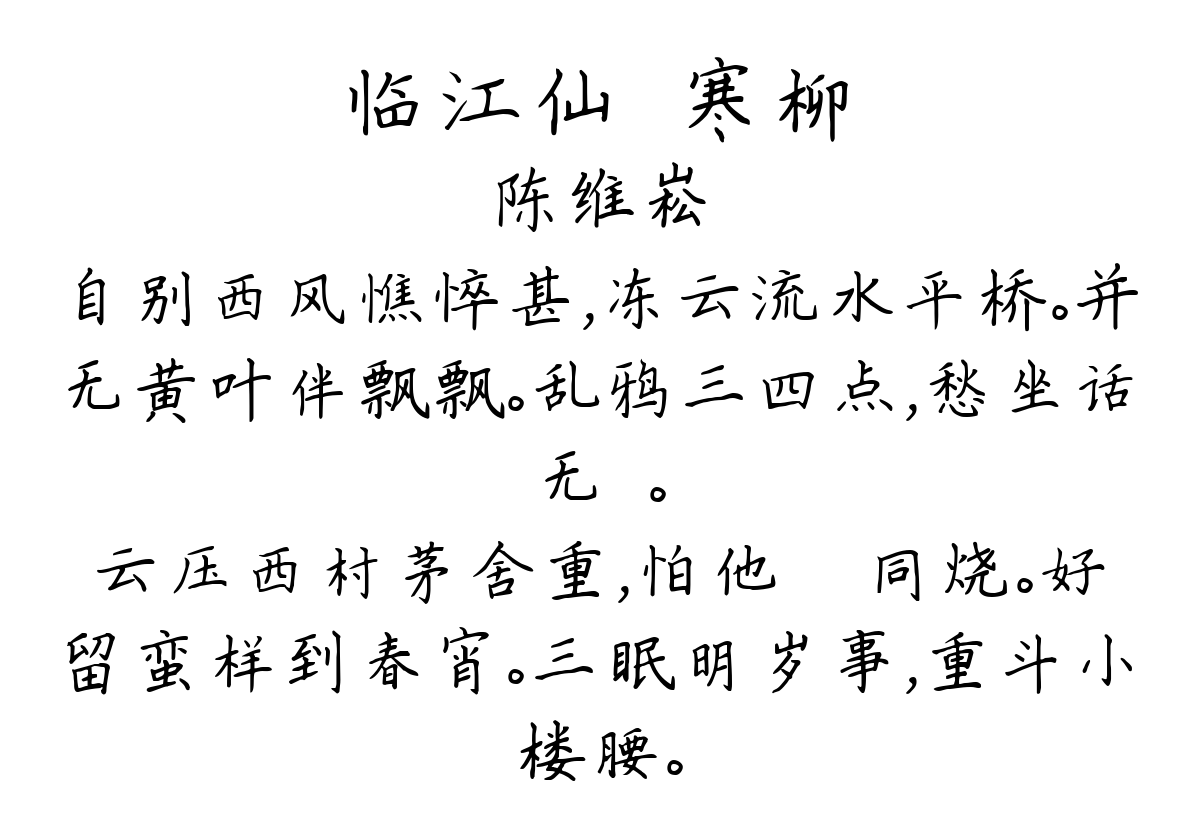 临江仙 寒柳
陈维崧
自别西风憔悴甚,冻云流水平桥。并
无黄叶伴飘飘。乱鸦三四点,愁坐话
无 。
云压西村茅舍重,怕他 同烧。好
留蛮样到春宵。三眠明岁事,重斗小
楼腰。